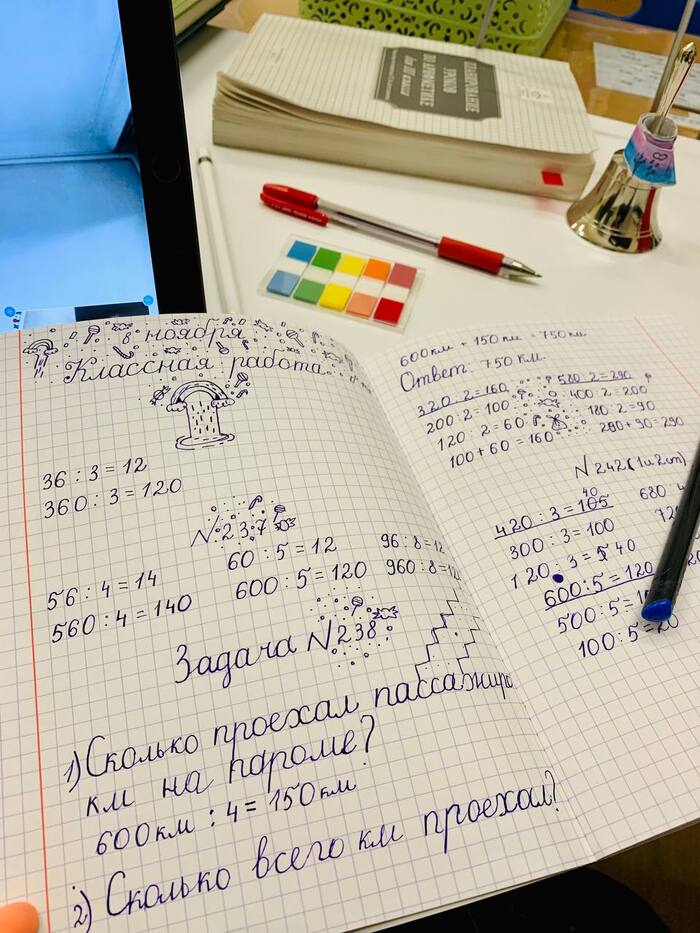 ПЛАНИРОВАНИЕ
УРОКОВ
ПО АРИФМЕТИКЕ
для III класса
8 ноября
Классная работа.
36 : 3 = 12
360 : 3 = 120
№237
56 : 4 = 14
560 : 4 = 140
60 : 5 = 12
600 : 5 = 120
96 : 8 = 12
960 : 8 = 12
Задача №238
1) Сколько проехал пассажир
км на пароме?
600 км : 4 = 150 км
2) Сколько всего км проехал?
600 км + 150 км = 750 км
Ответ: 750 км.
320 : 2 = 160
200 : 2 = 100
120 : 2 = 60
100 + 60 = 160
580 : 2 = 290
400 : 2 = 200
180 : 2 = 90
200 + 90 = 290
№242 (1 и 2 ст)
40
420 : 3 = 105
300 : 3 = 100
120 : 3 = 40
600 : 5 = 120
500 : 5 = 1
100 : 5 = 20
680 : 4
72